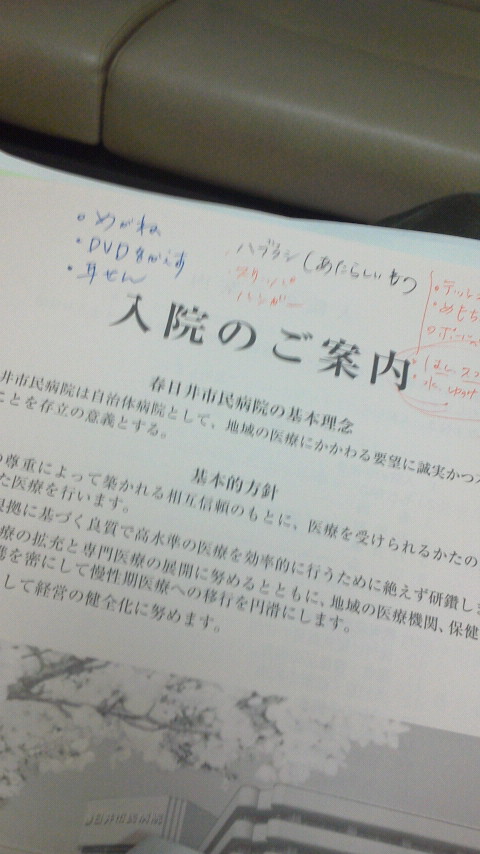 ・めがね
・DVD
・耳せん
ハブラシ(あたらしいもの
スリッパ
ハンガー
・ティッシ
・めも
・はし
水
入院のご案内
春日井市民病院の基本理念
井市民病院は自治体病院として、地域の医療にかかわる要望に誠実かつ
ことを存立の意義とする。
基本的方針
の尊重によって築かれる相互信頼のもとに、医療を受けられるかたの
た医療を行います。
根拠に基づく良質で高水準の医療を効率的に行うために絶えず研鑽し
療の拡充と専門医療の展開に努めるとともに、地域の医療機関、保健
を密にして慢性期医療への移行を円滑にします。
して経営の健全化に努めます。
春日井市民病院